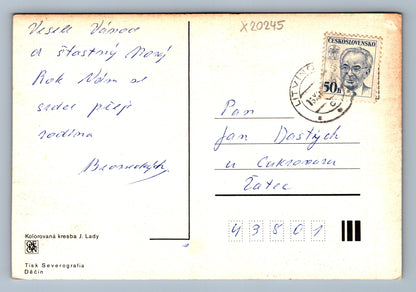 X20245
Veselé Vánoce
a šťastný Nový
Rok Vám od
srdce přeje
rodina
ČESKOSLOVENSKO
50h
LITVÍNOV
Pan
Jan
u Cukrovaru
Žatec
43801
Kolorovaná kresba J. Lady
Tisk Severografia
Děčín